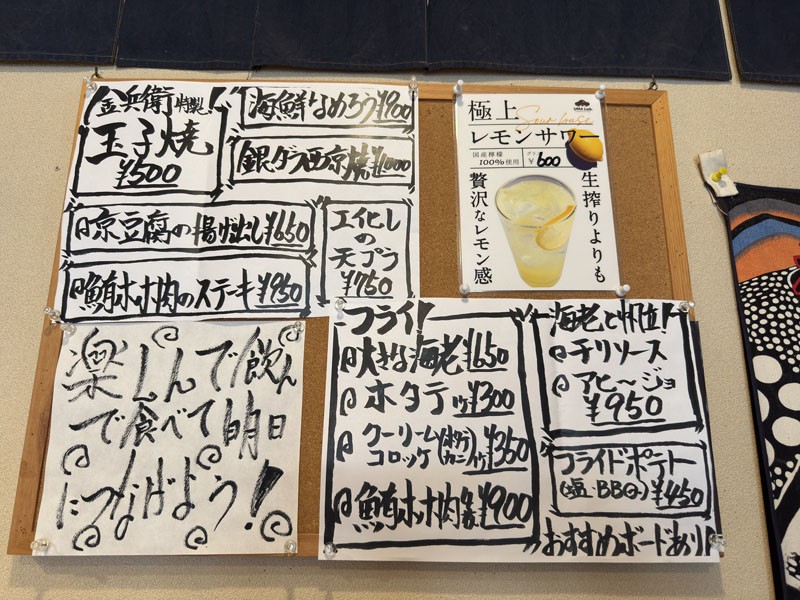 金兵衛特製!
玉子焼
¥500
海鮮なめろう¥900
銀ダラ西京焼¥1000
京豆腐の揚げ出し¥650
鮪ホホ肉のステキ¥950
エ化しの
天プラ
¥750
極上
Sour base
レモンサワー
国産檸檬
100%使用
¥600
生搾りよりも
贅沢なレモン感
楽しんで飲ん
で食べて明日
につながよう!
フライ!
大きな海老¥650
ホタテ1ケ¥300
クーリーム
コロッケ
(ホタテ
カニ)
1ケ¥350
鮪ホホ肉 ¥900
海老と帆立!
チリソース
アヒ〜ジョ
¥950
フライドポテト
(塩・BBQ)¥450
おすすめボードあり!